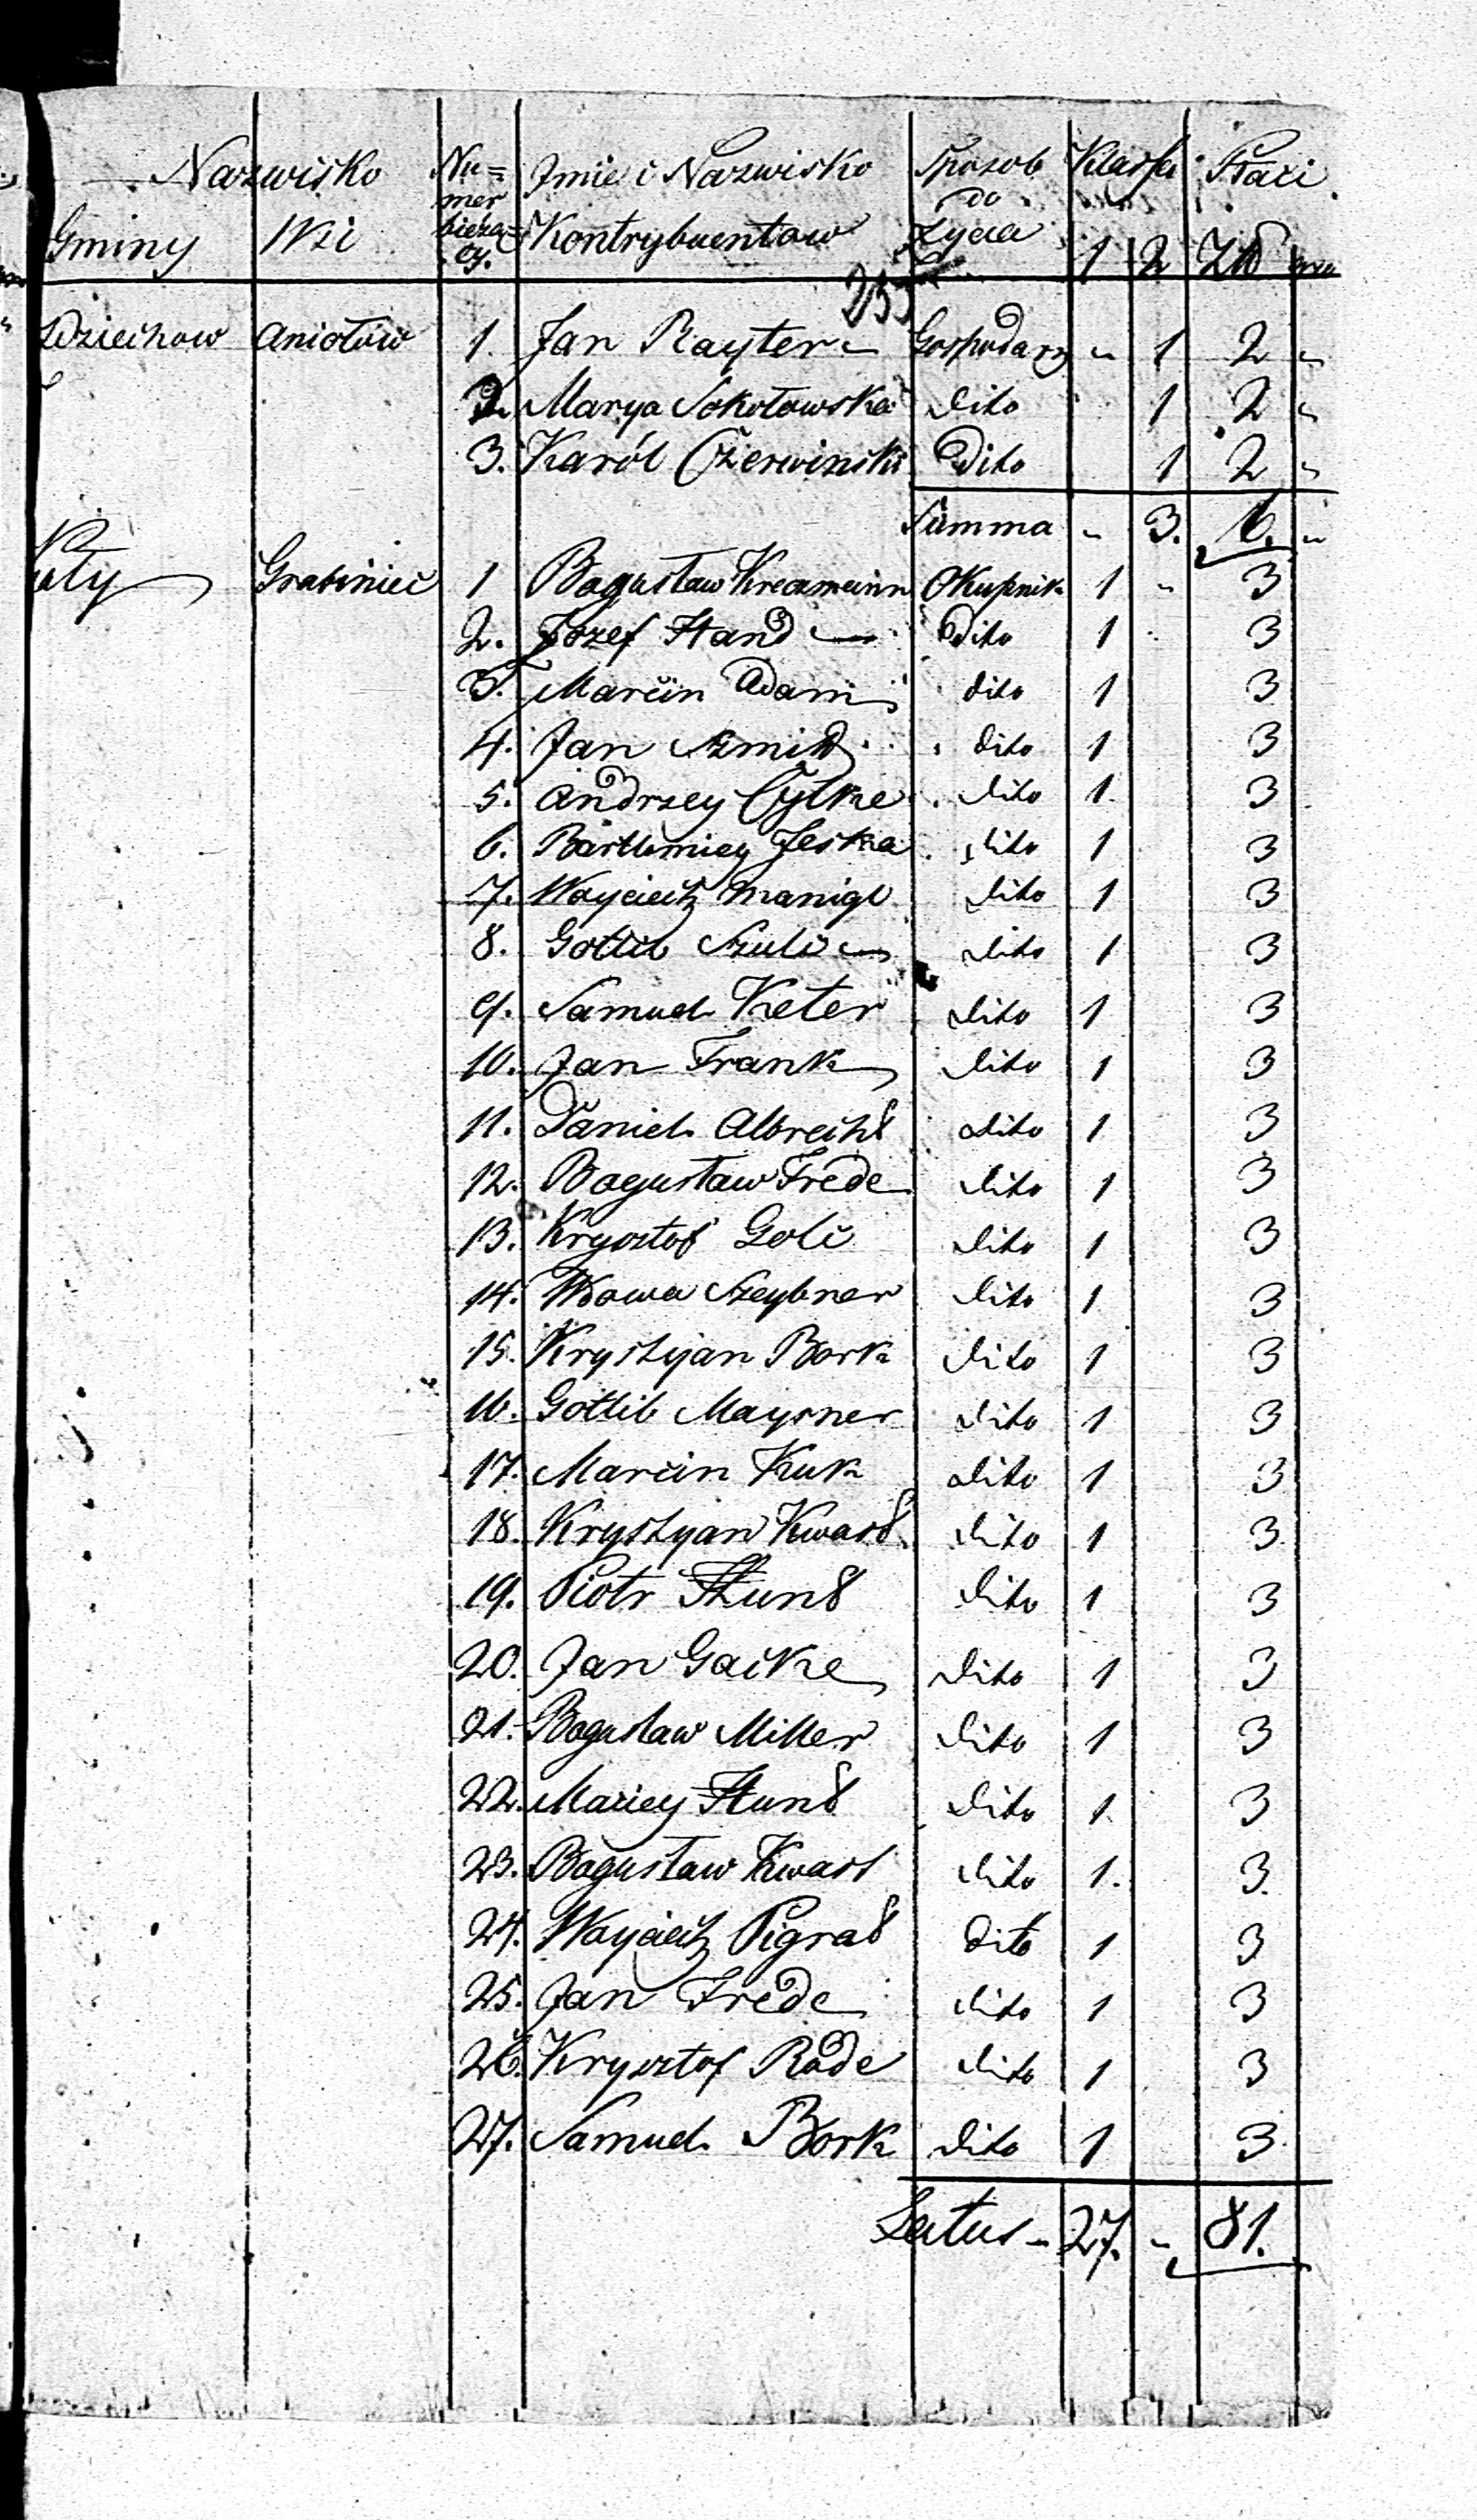 Nazwisko Nu= Jmie i Nazwisko Sposob Klassa Płaci
mer do
Gminy Wsi bieżą= Kontrybuentow życia 1 2 Zł
cy.
235
Dziechow Aniołów 1. Jan Rayter Gospodarz " 1 2 "
2. Marya Sokołowska dito 1 2 "
3. Karól Czerwinski Dito 1 2 "
Summa " 3. 6. "
Grabiniec 1 Bogusław Okupnik 1 " 3
2. Jozef Hand Dito 1 3
3. Marcin Adam dito 1 3
4. Jan Szmidt dito 1 3
5. Andrzey Cylke dito 1 3
6. Bartłomiey Jeska dito 1 3
7. Woyciech Manigl dito 1 3
8. Gotlib Szulc dito 1 3
9. Samuel Keter dito 1 3
10. Jan Frank dito 1 3
11. Daniel Albrecht dito 1 3
12. Bogusław Frede dito 1 3
13. Krysztof Golc dito 1 3
14. Wdowa Szeybner dito 1 3
15. Krystyjan Bork dito 1 3
16. Gotlib Maysner dito 1 3
17. Marcin Kuk dito 1 3
18. Krystyan Kwast dito 1 3
19. Piotr Hunt dito 1 3
20. Jan Gacke dito 1 3
21. Bogusław Miller dito 1 3
22. Maciey Hunt dito 1 3
23. Bogusław Kwast dito 1. 3.
24. Woyciech Pigrat dito 1 3
25. Jan Frede dito 1 3
26. Krysztof Rade dito 1 3
27. Samuel Bork dito 1 3
Latus " 27. " 81.